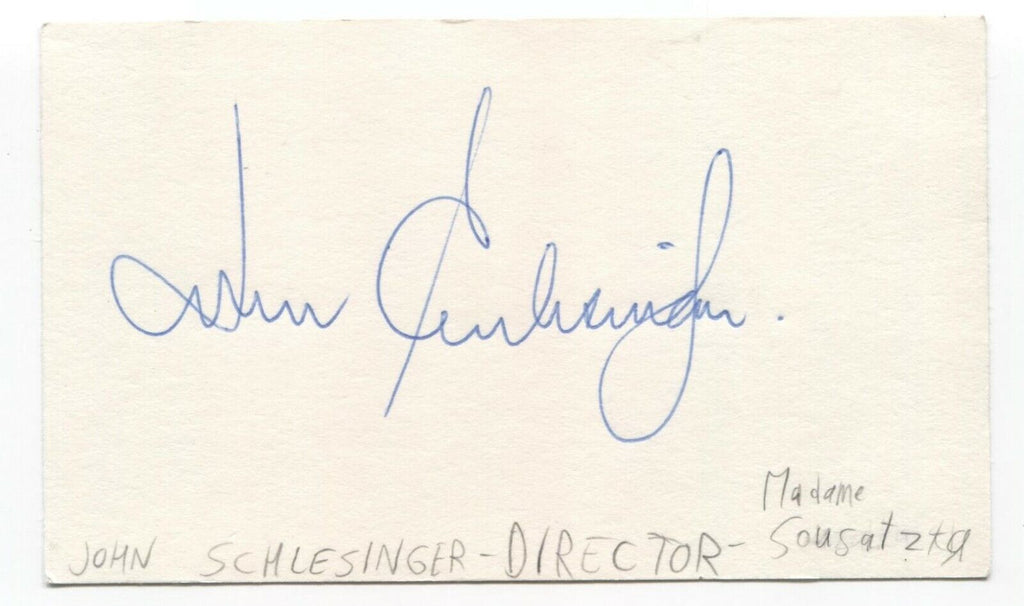 John Schlesinger.
Madame
JOHN SCHLESINGER - DIRECTOR - Sousatzka